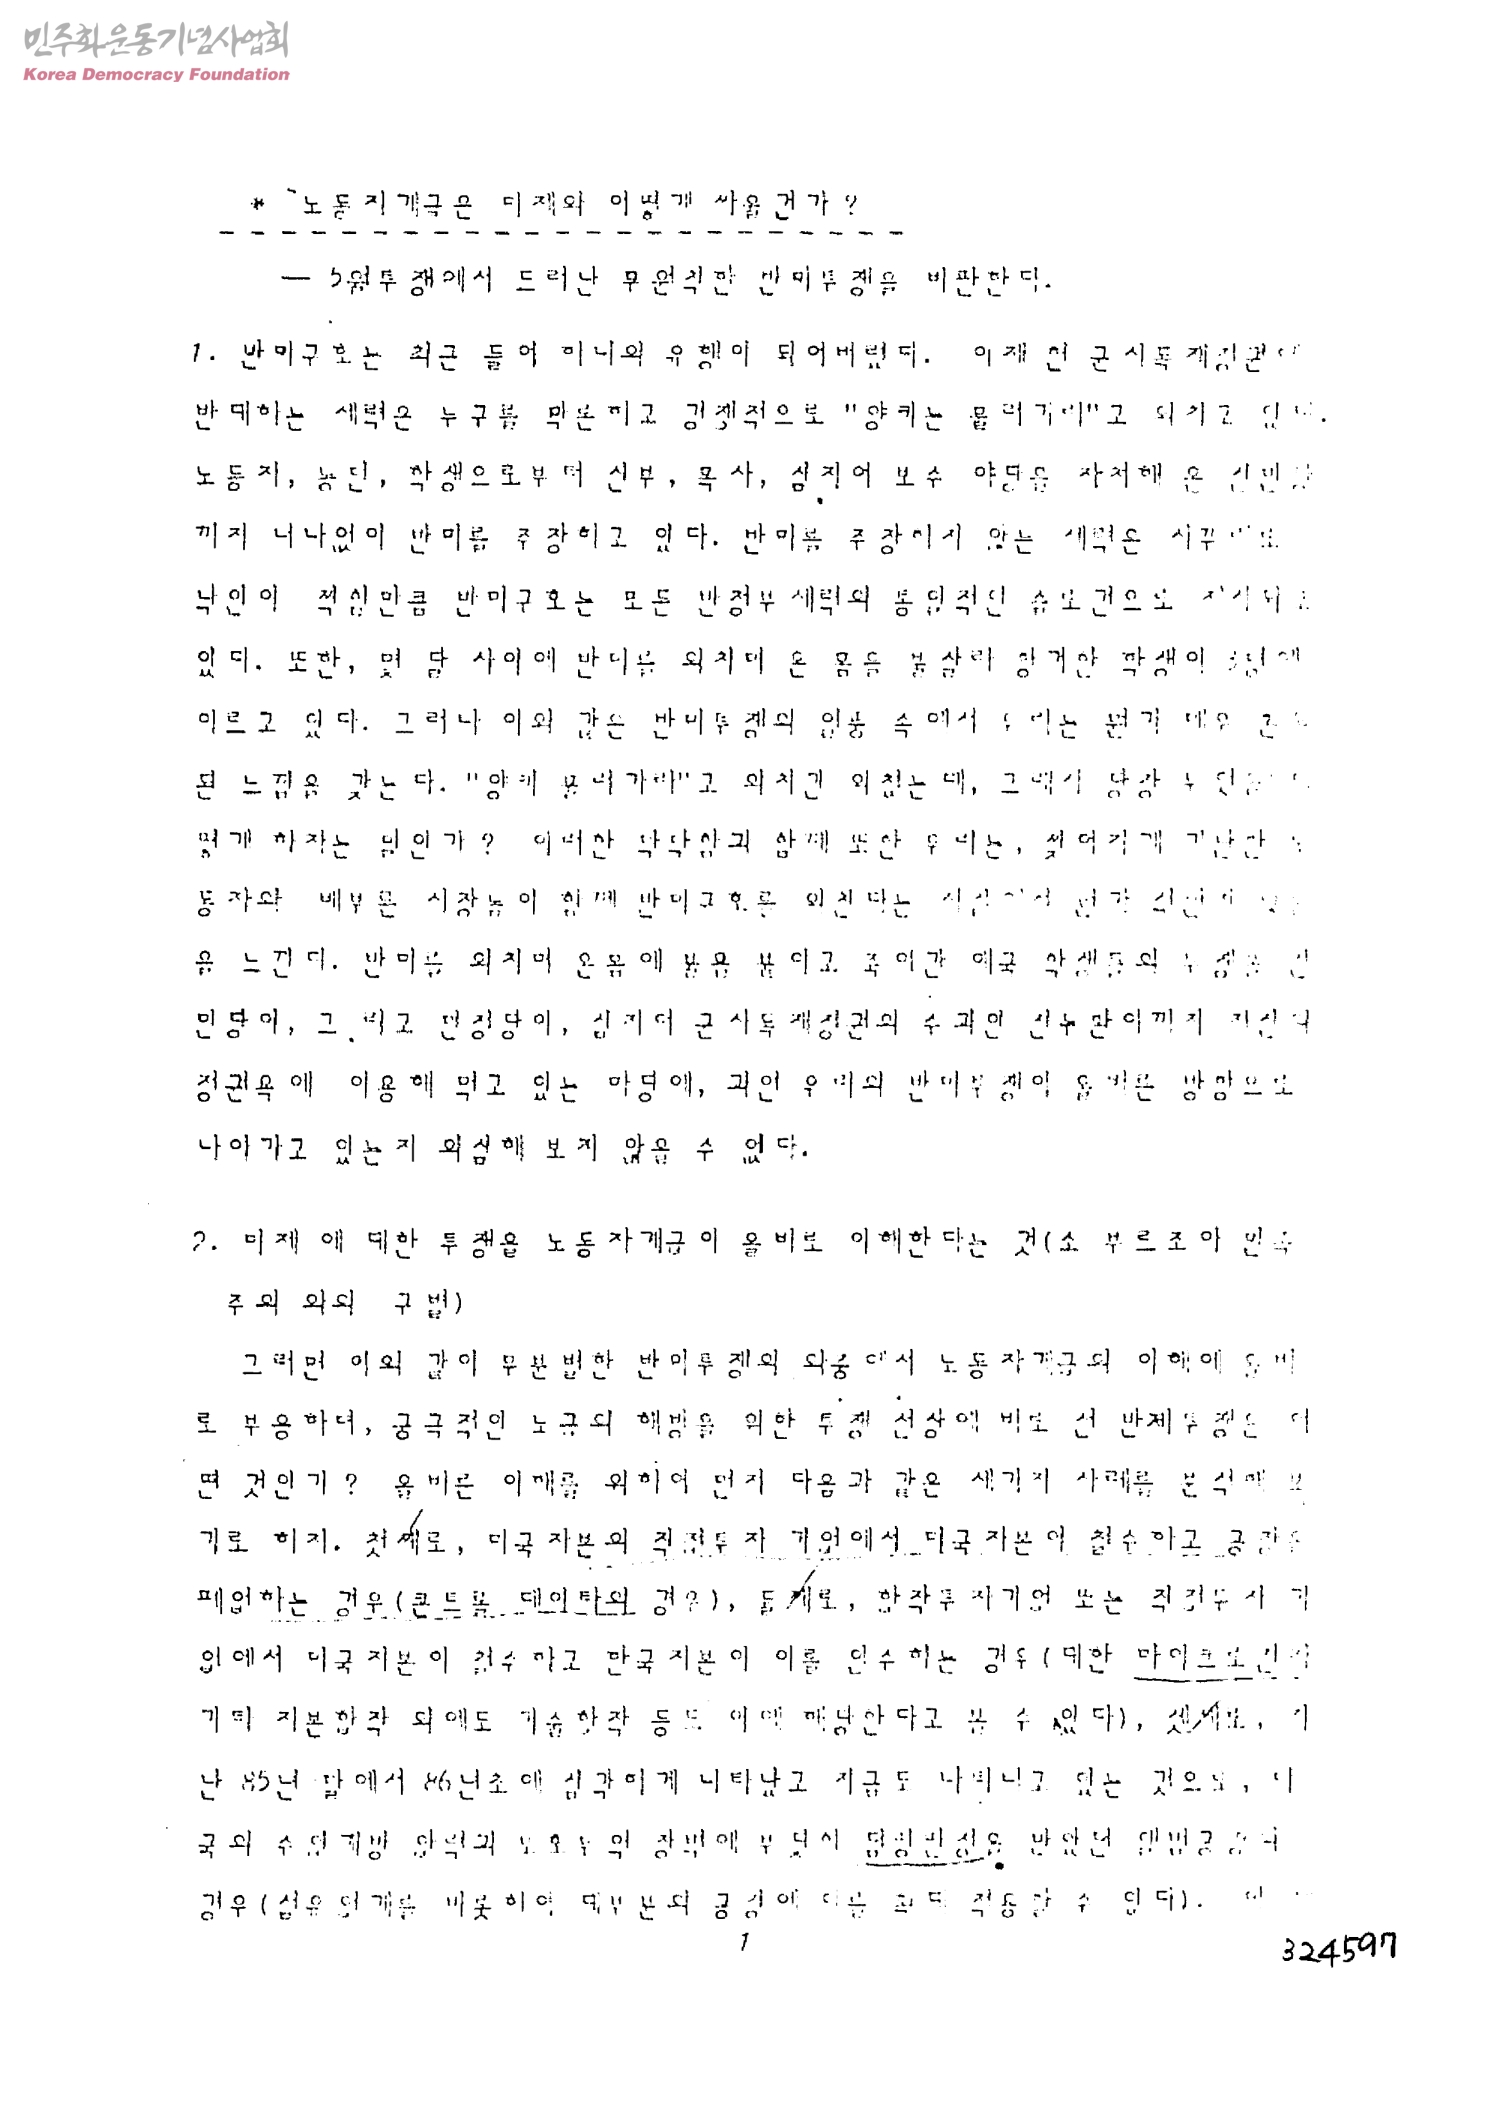 민주화운동기념사업회
Korea Democracy Foundation
* 노동자계급은 미제와 어떻게 싸울건가?
— 5월투쟁에서 드러난 무원칙한 반미투쟁을 비판한다.
1. 반미구호는 최근 들어 하나의 유행이 되어버렸다. 이제 현 군사독재정권에
반대하는 세력은 누구를 막론하고 경쟁적으로 "양키는 물러가라"고 외치고 있다.
노동자, 농민, 학생으로부터 신부, 목사, 심지어 보수 야당을 자처해 온 신민당
까지 너나없이 반미를 주장하고 있다. 반미를 주장하지 않는 세력은
낙인이 찍힐만큼 반미구호는 모든 반정부세력의 통일적인 슬로건으로
있다. 또한, 몇 달 사이에 반미를 외치며 온 몸을 불살라 항거한 학생이 에
이르고 있다. 그러나 이와 같은 반미투쟁의 열풍 속에서 우리는 뭔가 매우
된 느낌을 갖는다. "양키 물러가라"고 외치긴 외쳤는데, 그래서 당장
떻게 하자는 말인가? 이러한 막막함과 함께 또한 우리는, 찢어지게 가난한 노
동자와 배부른 사장놈이 함께 반미구호를 외친다는 뭔가
을 느낀다. 반미를 외치며 온몸에 불을 붙이고 죽어간 애국 학생들의 투쟁을 신
민당이, 그리고 민정당이, 심지어 군사독재정권의 수괴인 전두환이까지 자신의
정권욕에 이용해 먹고 있는 마당에, 과연 우리의 반미투쟁이 올바른 방향으로
나아가고 있는지 의심해 보지 않을 수 없다.
2. 미제 에 대한 투쟁을 노동자계급이 올바로 이해한다는 것(소 부르조아 민족
주의 와의 구별)
그러면 이와 같이 무분별한 반미투쟁의 와중에서 노동자계급의 이해에 올바
로 부응하며, 궁극적인 노급의 해방을 위한 투쟁 선상에 바로 선 반제투쟁은 어
떤 것인가? 올바른 이해를 위하여 먼저 다음과 같은 세가지 사례를 분석해 보
기로 하자. 첫째로, 미국자본의 직접투자 기업에서 미국자본이 철수하고 공장을
폐업하는 경우(콘트롤 데이타의 경우), 둘째로, 합작투자기업 또는 직접투자 기
업에서 미국자본이 철수하고 한국자본이 이를 인수하는 경우(대한 마이크로전자
기타 자본합작 외에도 기술합작 등도 이에 해당한다고 볼 수 있다), 셋째로, 지
난 85년 말에서 86년초에 심각하게 나타났고 지금도 나타나고 있는 것으로, 미
국의 수입개방 압력과 보호무역 장벽에 부딪쳐 덤핑판정을 받았던 앨범공장의
경우(섬유업계를 비롯하여 대부분의 공장에 이를 확대 적용할 수 있다).
1
324597